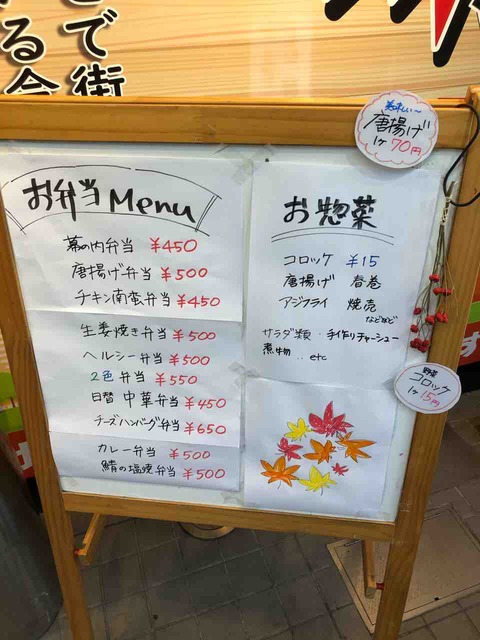 で街
る
お弁当 Menu
幕の内弁当 ¥450
唐揚げ弁当 ¥500
チキン南蛮弁当 ¥450
生姜焼き弁当 ¥500
ヘルシー弁当 ¥500
2色弁当 ¥550
日替中華弁当 ¥450
チーズハンバーグ弁当 ¥650
カレー弁当 ¥500
鯖の塩焼弁当 ¥500
美味しい〜
唐揚げ
1ヶ70円
お惣菜
コロッケ ¥15
唐揚げ 春巻
アジフライ 焼売
などなど
サラダ類・手作りチャーシュー
煮物 .. etc
野菜
コロッケ
1ヶ15円
す